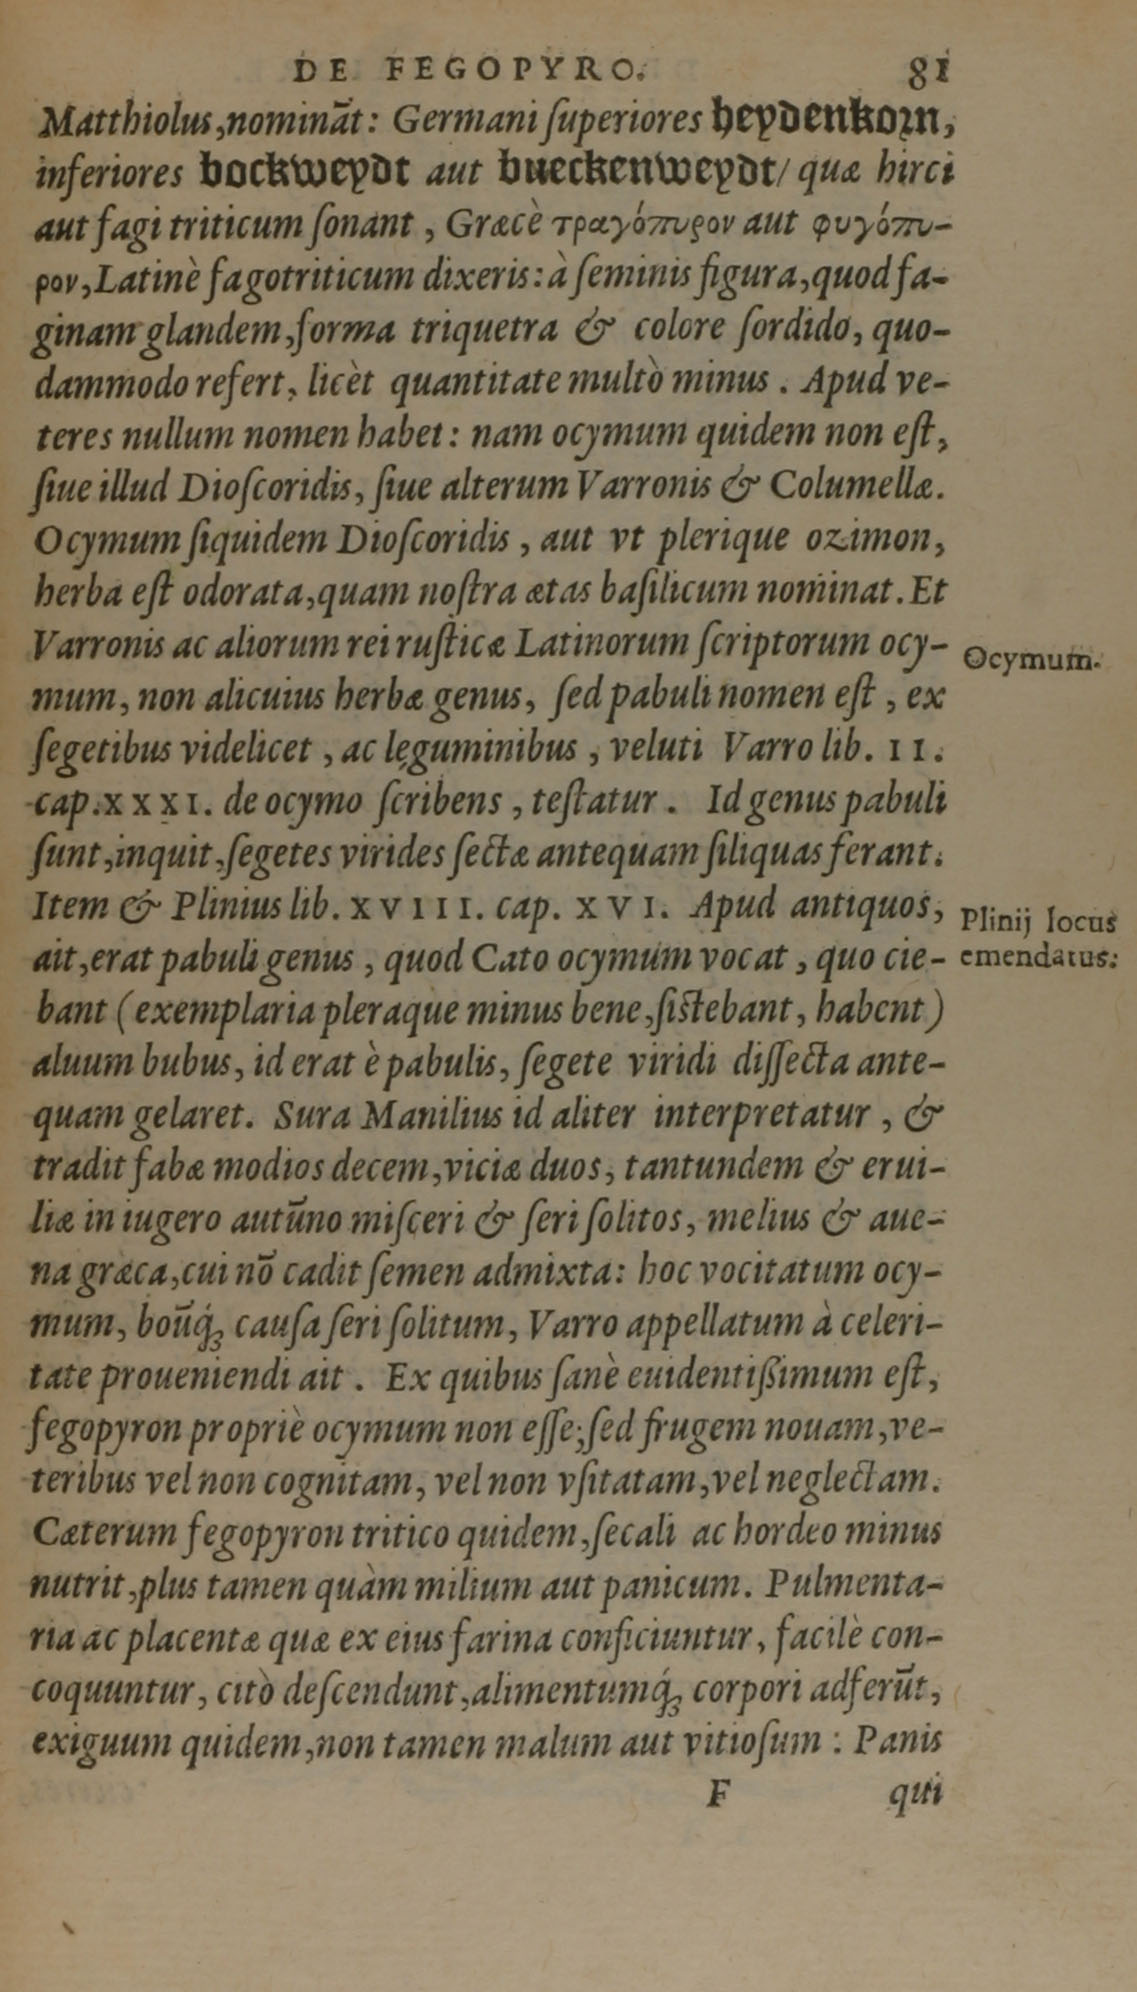 DE FEGOPYRO. 81
Matthiolus, nominãt: Germani ſuperiores heydenkorn,
inferiores bockweydt aut bueckenweydt/ quæ hirci
aut fagi triticum ſonant, Græcè τραγόπυρον aut φυγόπυ-
ρον, Latinè fagotriticum dixeris: à ſeminis figura, quod fa-
ginam glandem, forma triquetra & colore ſordido, quo-
dammodo refert, licèt quantitate multò minus. Apud ve-
teres nullum nomen habet: nam ocymum quidem non eſt,
ſiue illud Dioſcoridis, ſiue alterum Varronis & Columellæ.
Ocymum ſiquidem Dioſcoridis, aut vt plerique ozimon,
herba eſt odorata, quam noſtra ætas baſilicum nominat. Et
Varronis ac aliorum rei ruſticæ Latinorum ſcriptorum ocy-
Ocymum.
mum, non alicuius herbæ genus, ſed pabuli nomen eſt, ex
ſegetibus videlicet, ac leguminibus, veluti Varro lib. II.
cap. XXXI. de ocymo ſcribens, teſtatur. Id genus pabuli
ſunt, inquit, ſegetes virides ſectæ antequam ſiliquas ferant.
Item & Plinius lib. XVIII. cap. XVI. Apud antiquos,
Plinij locus
ait, erat pabuli genus, quod Cato ocymum vocat, quo cie-
emendatus.
bant (exemplaria pleraque minus bene, ſiſtebant, habent)
aluum bubus, id erat è pabulis, ſegete viridi diſſecta ante-
quam gelaret. Sura Manilius id aliter interpretatur, &
tradit fabæ modios decem, viciæ duos, tantundem & erui-
liæ in iugero autũno miſceri & ſeri ſolitos, melius & aue-
na græca, cui nõ cadit ſemen admixta: hoc vocitatum ocy-
mum, boũq́ꝫ cauſa ſeri ſolitum, Varro appellatum à celeri-
tate proueniendi ait. Ex quibus ſanè euidentißimum eſt,
fegopyron propriè ocymum non eſſe; ſed frugem nouam, ve-
teribus vel non cognitam, vel non vſitatam, vel neglectam.
Cæterum fegopyron tritico quidem, ſecali ac hordeo minus
nutrit, plus tamen quàm milium aut panicum. Pulmenta-
ria ac placentæ quæ ex eius farina conficiuntur, facilè con-
coquuntur, citò deſcendunt, alimentumq́ꝫ corpori adferũt,
exiguum quidem, non tamen malum aut vitioſum: Panis
F qui